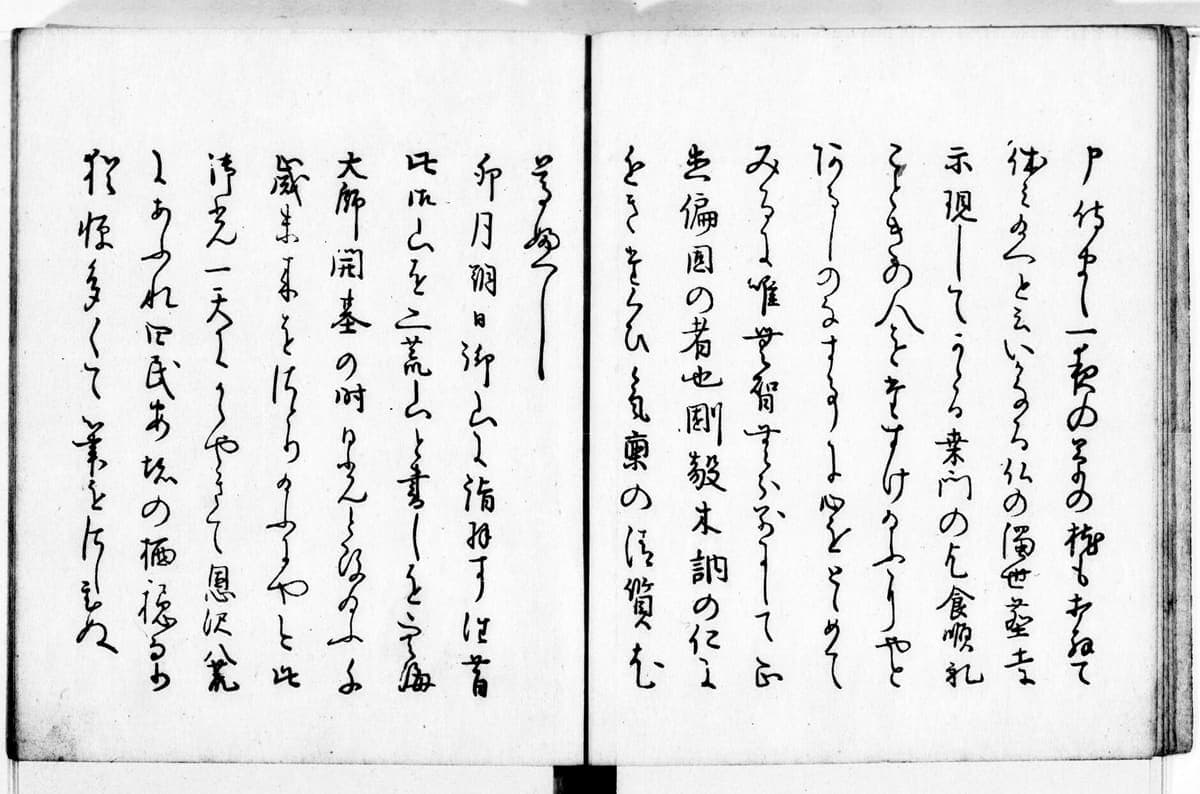 申侍まゝ一夜の草の枕も打解て
休み給へと云いかなる仏の濁世塵土に
示現してかゝる桒門の乞食順礼
こときの人をたすけ給ふにやと
あるしのなす事に心をとゝめて
みるに唯無智無分別にして正
直偏固の者也剛毅木訥の仁に
近きたくひ気稟の清質尤
尊ふへし
卯月朔日御山に詣拝す往昔
此御山を二荒山と書しを空海
大師開基の時日光と改給ふ千
歳未来をさとり給ふにや今此
御光一天にかゝやきて恩沢八荒
にあふれ四民安堵の栖穏なり
猶憚多くて筆をさし置ぬ